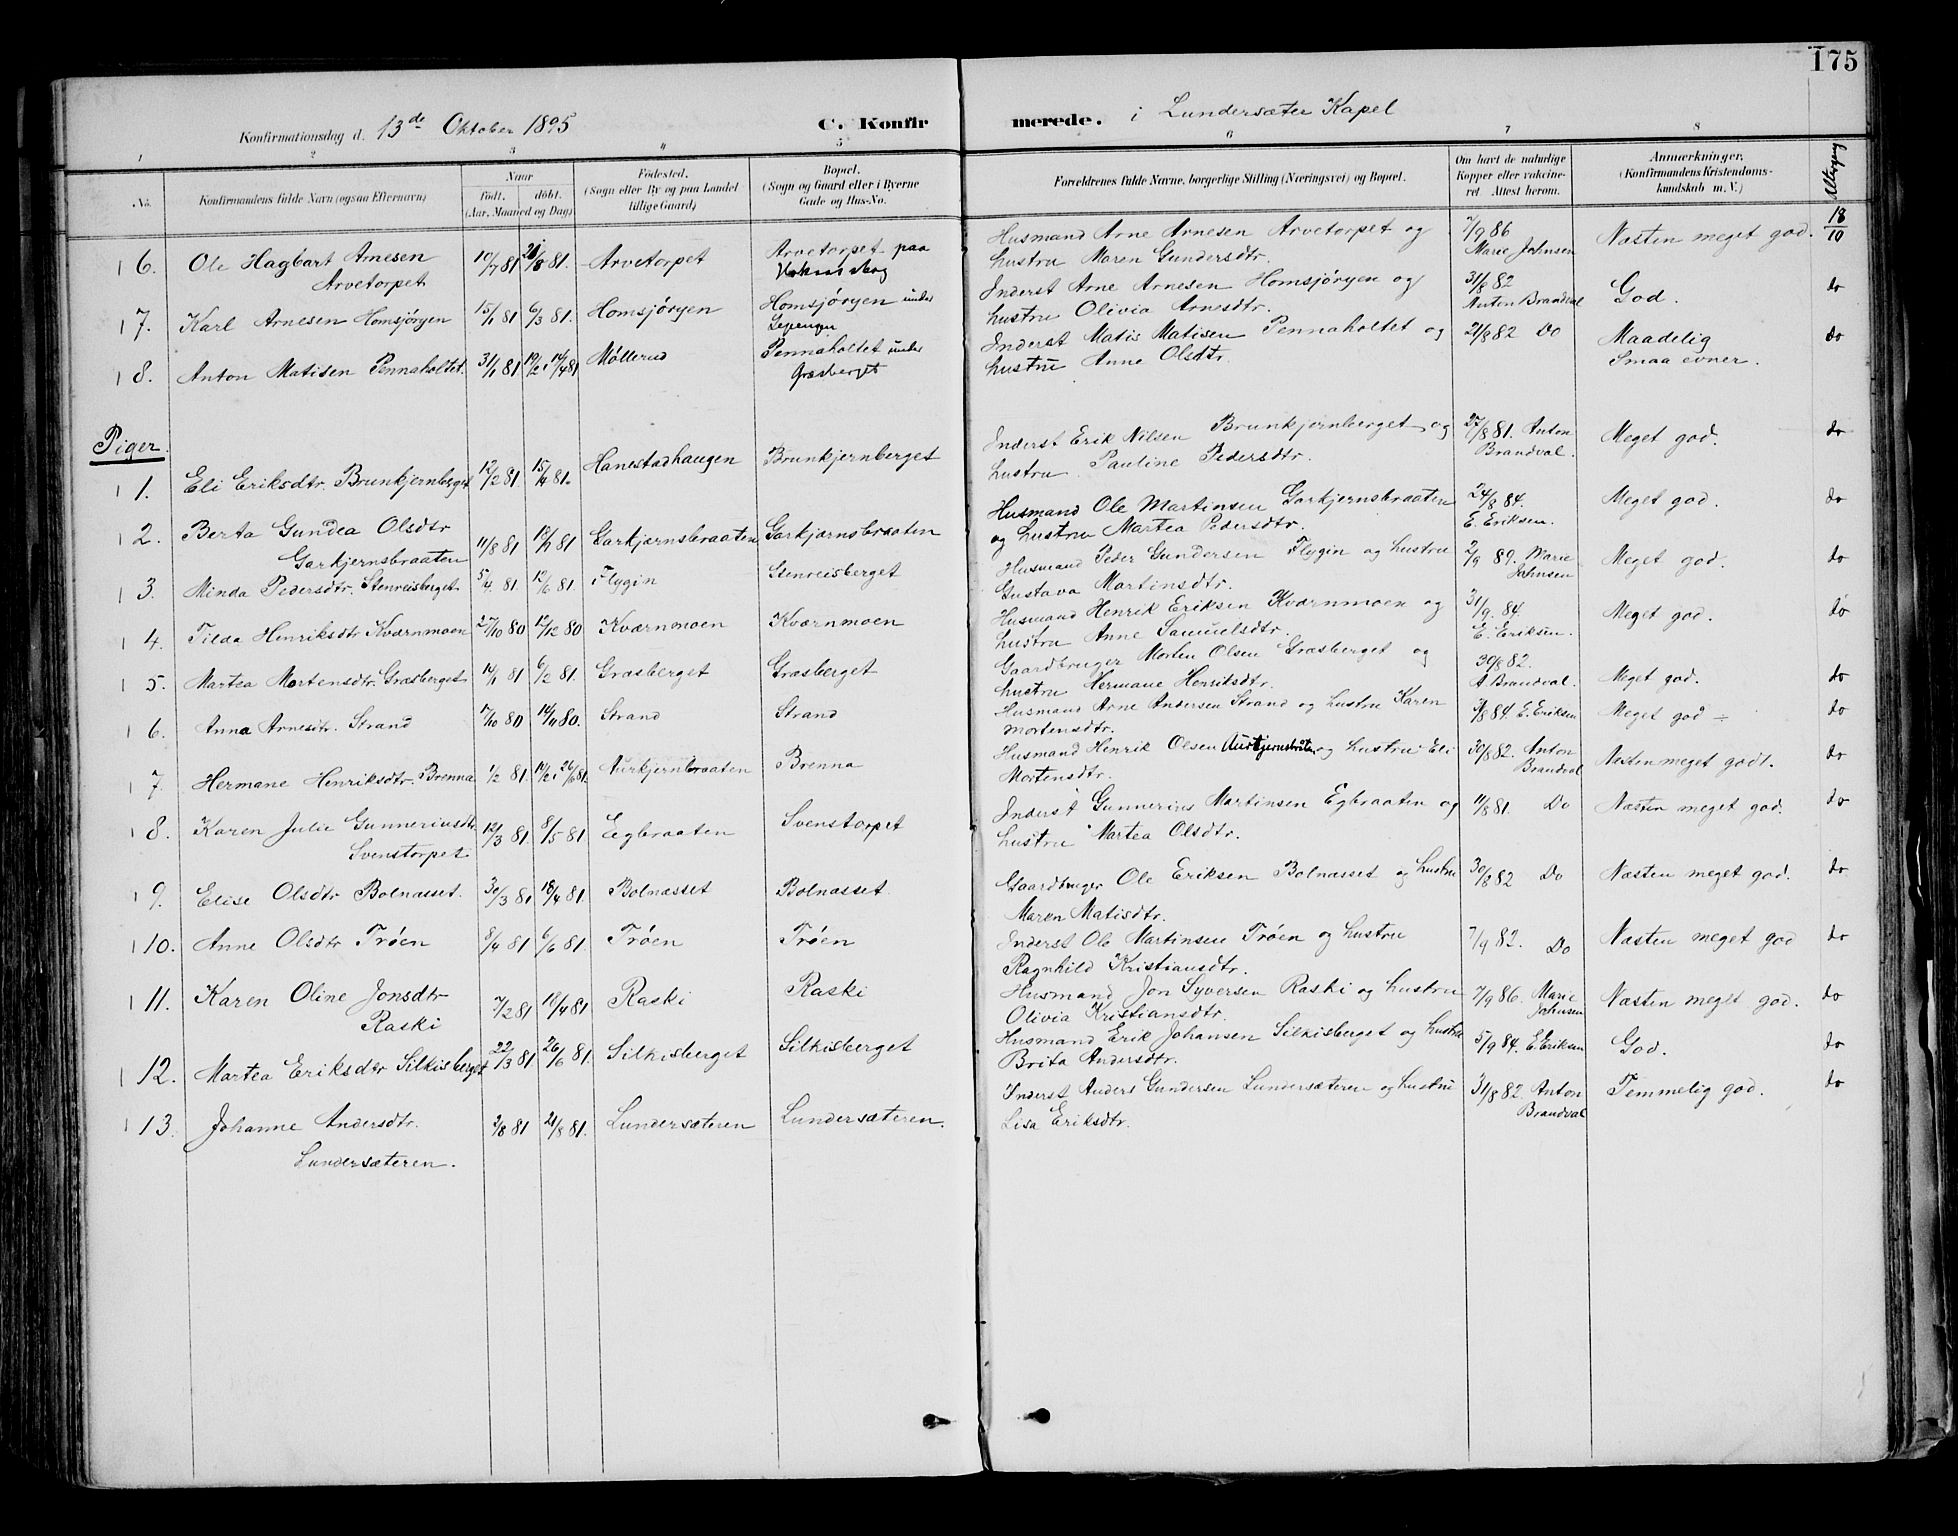 175
Konfirmationsdag d. 13de Oktober 1895 C. Konfirmerede. i Lundersæter Kapel
1 2 3 4 5 6 7 8
No. Konfirmandens fulde Navn (ogsaa Efternavn)
Naar
født. døbt.
(Aar, Maaned og Dag)
Fødested.
(Sogn eller By og paa Landet
tillige Gaard)
Bopæl.
(Sogn og Gaard eller i Byerne
Gade og Hus-No.
Forældrenes fulde Navne, borgerlige Stilling (Næringsvei) og Bopæl.
Om havt de naturlige
Kopper eller vakcineret.
Attest herom.
Anmærkninger.
(Konfirmandens Kristendomskundskab
m. V.)
Altergang
6. Ole Hagbart Arnesen
Arvetorpet 10/7 81 21/8 81. Arvetorpet Arvetorpet paa
Husmand Arne Arnesen Arvetorpet og
hustru Maren Gundersdtr. 7/9 86
Marie Johnsen Næsten meget god. 18/10
7. Karl Arnesen Homsjøryen 15/1 81 6/3 81. Homsjøryen Homsjøryen under
Inderst Arne Arnesen Homsjøryen og
hustru Olivia Arnesdtr. 31/8 82
Anton Brandval God. do
8. Anton Matisen Pennaholtet. 31/1 81 Møllerud Pennaholtet under
Græsberget
Inderst Matis Matisen Pennaholtet og
hustru Anne Olsdtr. 21/8 82 Do Maadelig
Smaa evner. do
Piger.
1. Eli Eriksdtr. Brunkjernberget 12/2 81 15/4 81. Hanestadhaugen Brunkjernberget
Inderst Erik Nilsen Brunkjernberget og
hustru Pauline Pedersdtr. 27/8 81. Anton
Brandval. Meget god. do
2. Berta Gundea Olsdtr
Garkjernsbraaten 11/8 81 Garkjærnsbraaten Garkjærnsbraaten
Husmand Ole Martinsen Garkjernsbraaten
og hustru Martea Pedersdtr. 24/8 84.
E. Eriksen. Meget god. do
3. Minda Pedersdtr. Stenreisberget 5/4 81 12/6 81. Flygin Stenreisberget
Husmand Peder Gundersen Flygin og hustru
Gustava Martinsdtr. 2/9 89. Marie
Johnsen Meget god. do
4. Tilda Henriksdtr Kværnmoen 27/10 80 12/12 80 Kværnmoen Kværnmoen
Husmand Henrik Eriksen Kværnmoen og
hustru Anne Samuelsdtr. 31/9. 84.
E. Eriksen. Meget god. do
5. Martea Mortensdtr. Græsberget 14/1 81 6/2 81. Græsberget Græsberget
Gaardbruger Morten Olsen Græsberget og
hustru Hermane Henriksdtr. 30/8 82.
A Brandval. Meget god. do
6. Anna Arnesdtr. Strand 7/10 80 14/11 80. Strand Strand
Husmand Arne Andersen Strand og hustru Karen
Mortensdtr. 84. E. Eriksen Meget god ÷ do
7. Hermane Henriksdtr. Brenna 1/2 81 Aurkjernbraaten Brenna
Husmand Henrik Olsen og hustru Eli
Mortensdtr. 30/8 82. Anton
Brandval Næsten meget godt. do
8. Karen Julie Gunneriusdtr.
Svenstorpet 12/3 81. 8/5 81 Egbraaten Svenstorpet
Inderst Gunnerius Martinsen Egbraaten og
hustru Martea Olsdtr. 11/8 81. Do Næsten meget god. do
9. Elise Olsdtr Bolnasset. 30/3 81 18/4 81. Bolnasset Bolnasset.
Gaardbruger Ole Eriksen Bolnasset og hustru
Maren Matisdtr. 30/8 82 Do Næsten meget god. do
10. Anne Olsdtr Trøen 8/4 81 6/6 81. Trøen Trøen
Inderst Ole Martinsen Trøen og hustru
Ragnhild Kristiansdtr. 7/9 82. Do Næsten meget god do
11. Karen Oline Jonsdtr
Raski 7/2 81 18/4 81 Raski Raski
Husmand Jon Syversen Raski og hustru
Olivia Kristiansdtr. 7/9 86. Marie
Johnsen Næsten meget god. do
12. Martea Eriksdtr Silkisberget 22/3 81 26/6 81. Silkisberget Silkisberget
Husmand Erik Johansen Silkisberget og hustru
Brita Andersdtr. 5/9 84. E. Eriksen God. do
13. Johanne Andersdtr.
Lundersæteren. 2/8 81 21/8 81. Lundersæteren Lundersæteren.
Inderst Anders Gundersen Lundersæteren og hustru
Lisa Eriksdtr. 31/8 82. Anton
Brandval Temmelig god. do